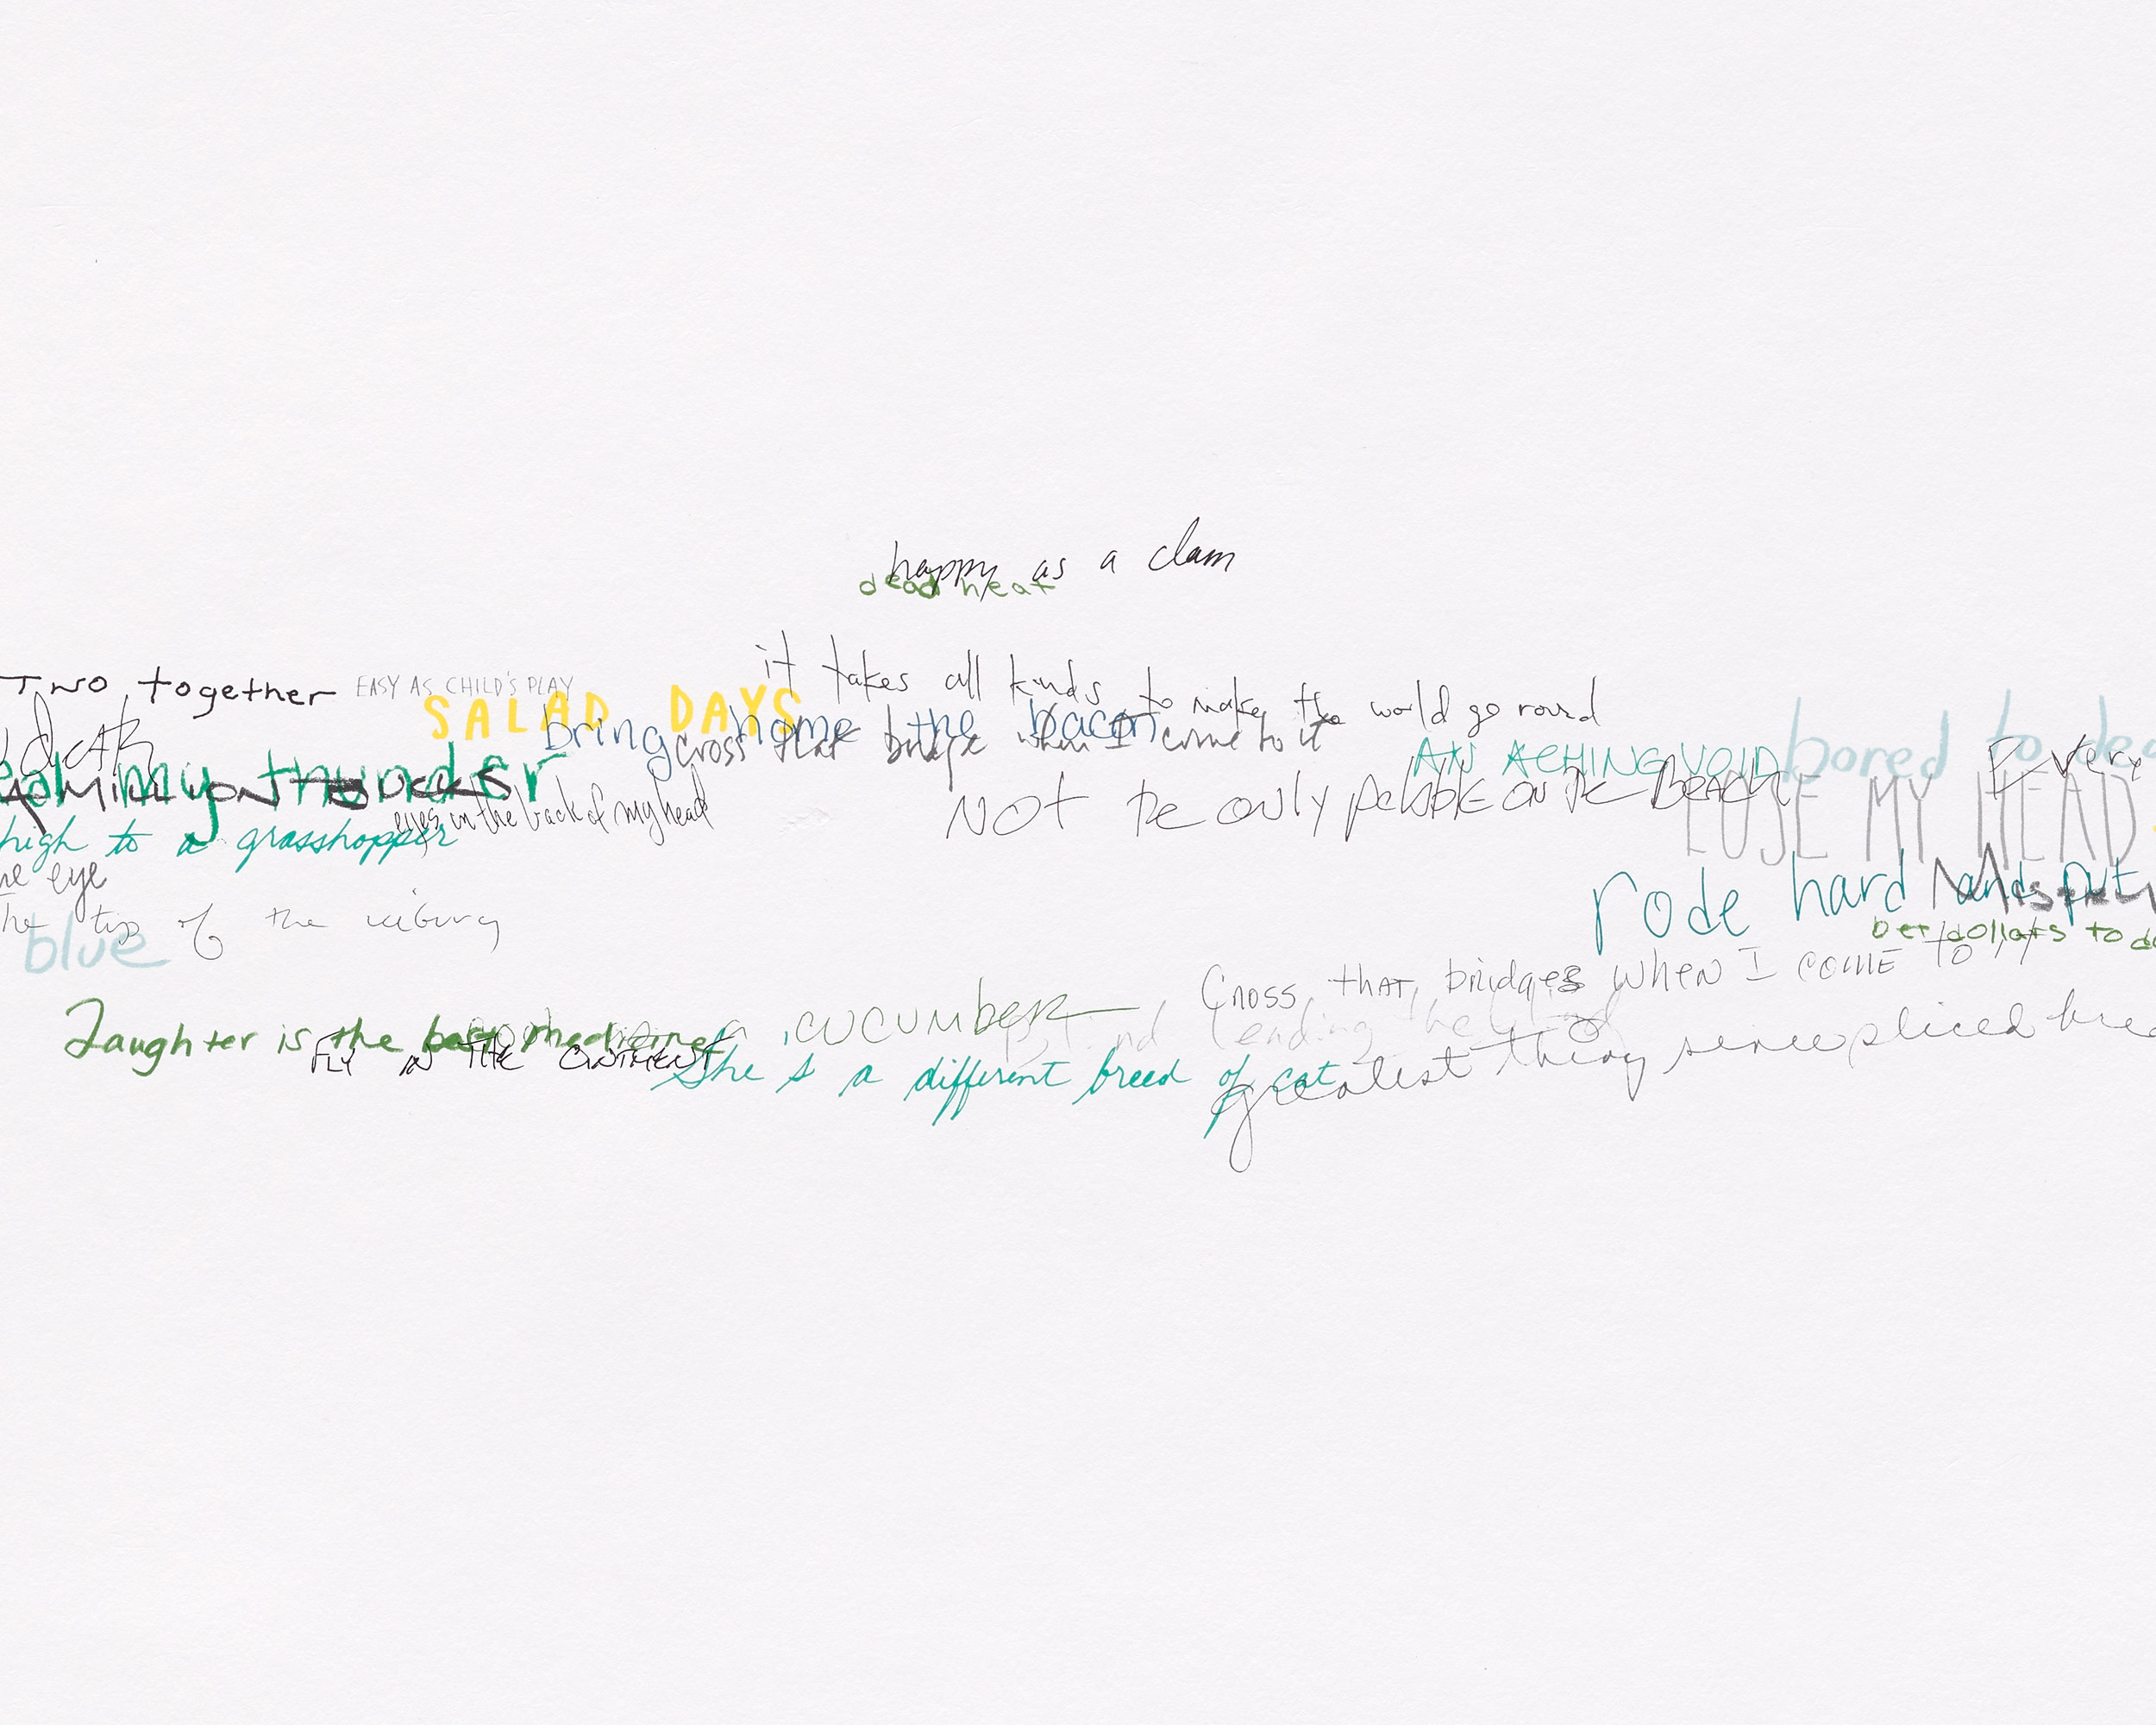 happy as a clam
dead heat
it takes all kinds to make the world go round
Two together
EASY AS CHILD'S PLAY
SALAD DAYS
bring home the bacon
cross that bridge when I come to it
AN ACHING VOID
bored to dea
Every
my thunder
A MILLION BUCKS
eyes in the back of my head
NOT the only pebble on the Beach
LOSE MY HEAD
high to a grasshopper
eye
rode hard and put
the tip of the iceburg
blue
bet dollars to do
Cross that bridges when I come to it
Laughter is the best medicine
a cucumber
lending
FLY IN THE OINTMENT
She s a different breed of cat
greatest thing since sliced brea